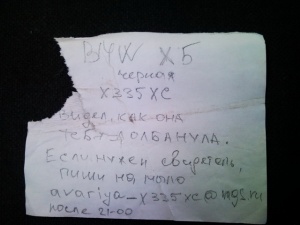 BMW X5
черная
X335XC
видел, как она
тебя долбанула.
Если нужен свидетель,
пиши на мыло
avariya_x335xc@ngs.ru
после 21-00